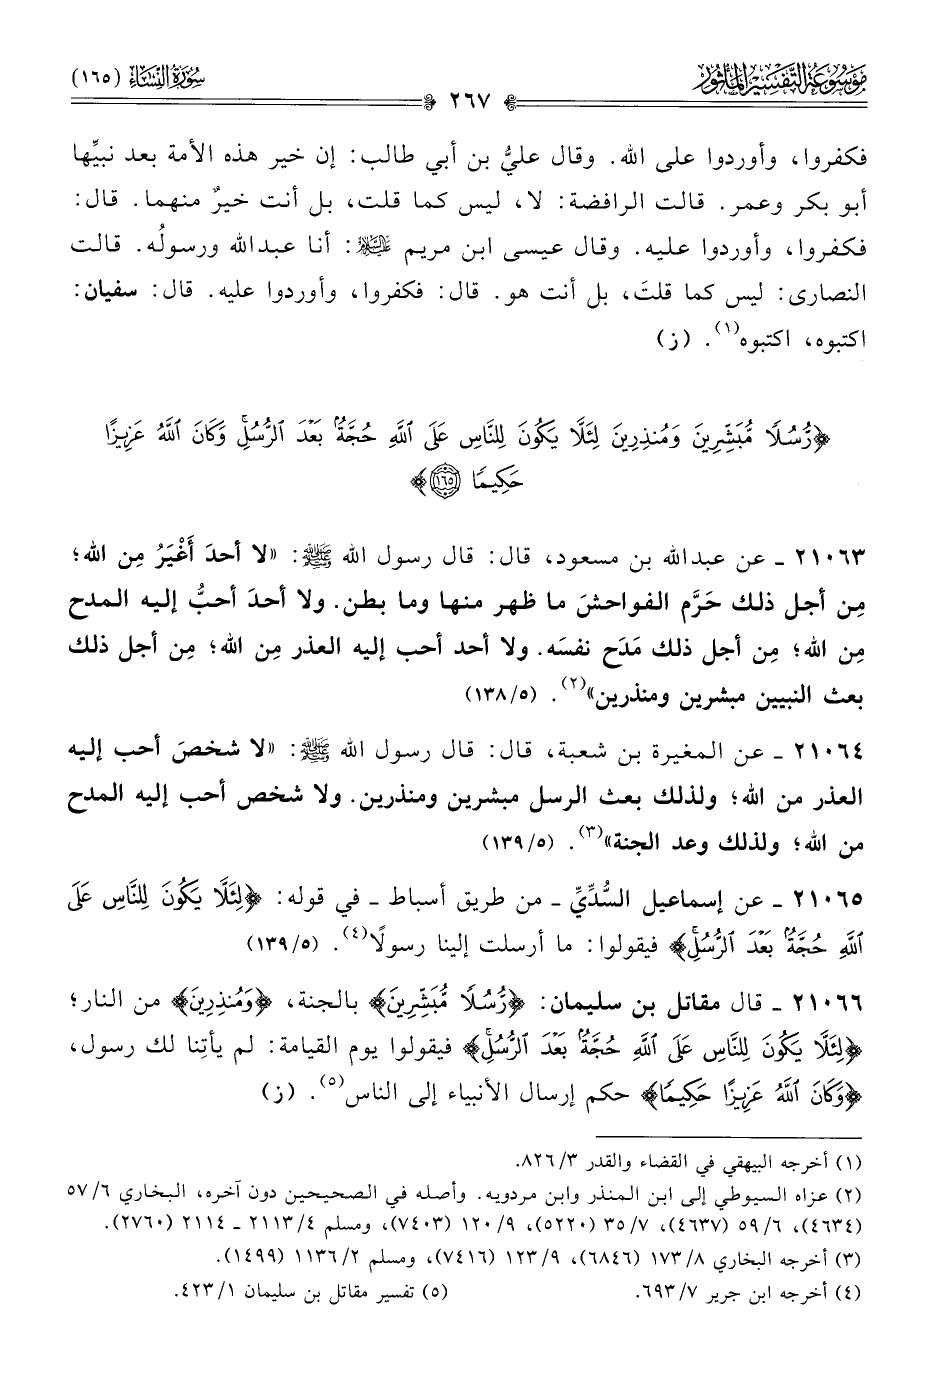 مَوْسُوعَةُ التَّفْسِيرِ المَأْثُورِ
سُورَةُ النِّسَاءِ (١٦٥)
٢٦٧
فكفروا، وأوردوا على الله. وقال عليُّ بن أبي طالب: إن خير هذه الأمة بعد نبيِّها
أبو بكر وعمر. قالت الرافضة: لا، ليس كما قلت، بل أنت خيرٌ منهما. قال:
فكفروا، وأوردوا عليه. وقال عيسى ابن مريم عليه السلام: أنا عبدالله ورسولُه. قالت
النصارى: ليس كما قلتَ، بل أنت هو. قال: فكفروا، وأوردوا عليه. قال: سفيان:
اكتبوه، اكتبوه(١). (ز)
﴿رُّسُلًا مُّبَشِّرِينَ وَمُنذِرِينَ لِئَلَّا يَكُونَ لِلنَّاسِ عَلَى ٱللَّهِ حُجَّةٌۢ بَعْدَ ٱلرُّسُلِۚ وَكَانَ ٱللَّهُ عَزِيزًا
حَكِيمًا ١٦٥﴾
٢١٠٦٣ ـ عن عبدالله بن مسعود، قال: قال رسول الله ﷺ: «لا أحدَ أَغْيَرُ مِن الله؛
مِن أجل ذلك حَرَّم الفواحشَ ما ظهر منها وما بطن. ولا أحدَ أحبُّ إليه المدح
مِن الله؛ مِن أجل ذلك مَدَح نفسَه. ولا أحد أحب إليه العذر مِن الله؛ مِن أجل ذلك
بعث النبيين مبشرين ومنذرين»(٢). (١٣٨/٥)
٢١٠٦٤ ـ عن المغيرة بن شعبة، قال: قال رسول الله ﷺ: «لا شخصَ أحب إليه
العذر من الله؛ ولذلك بعث الرسل مبشرين ومنذرين. ولا شخص أحب إليه المدح
من الله؛ ولذلك وعد الجنة»(٣). (١٣٩/٥)
٢١٠٦٥ ـ عن إسماعيل السُّدِّيِّ ـ من طريق أسباط ـ في قوله: ﴿لِئَلَّا يَكُونَ لِلنَّاسِ عَلَى
ٱللَّهِ حُجَّةٌۢ بَعْدَ ٱلرُّسُلِۚ﴾ فيقولوا: ما أرسلت إلينا رسولًا(٤). (١٣٩/٥)
٢١٠٦٦ ـ قال مقاتل بن سليمان: ﴿رُّسُلًا مُّبَشِّرِينَ﴾ بالجنة، ﴿وَمُنذِرِينَ﴾ من النار؛
﴿لِئَلَّا يَكُونَ لِلنَّاسِ عَلَى ٱللَّهِ حُجَّةٌۢ بَعْدَ ٱلرُّسُلِۚ﴾ فيقولوا يوم القيامة: لم يأتِنا لك رسول،
﴿وَكَانَ ٱللَّهُ عَزِيزًا حَكِيمًا﴾ حكم إرسال الأنبياء إلى الناس(٥). (ز)
(١) أخرجه البيهقي في القضاء والقدر ٨٢٦/٣.
(٢) عزاه السيوطي إلى ابن المنذر وابن مردويه. وأصله في الصحيحين دون آخره، البخاري ٥٧/٦
(٤٦٣٤)، ٥٩/٦ (٤٦٣٧)، ٣٥/٧ (٥٢٢٠)، ١٢٠/٩ (٧٤٠٣)، ومسلم ٢١١٣/٤ ـ ٢١١٤ (٢٧٦٠).
(٣) أخرجه البخاري ١٧٣/٨ (٦٨٤٦)، ١٢٣/٩ (٧٤١٦)، ومسلم ١١٣٦/٢ (١٤٩٩).
(٤) أخرجه ابن جرير ٦٩٣/٧. (٥) تفسير مقاتل بن سليمان ٤٢٣/١.